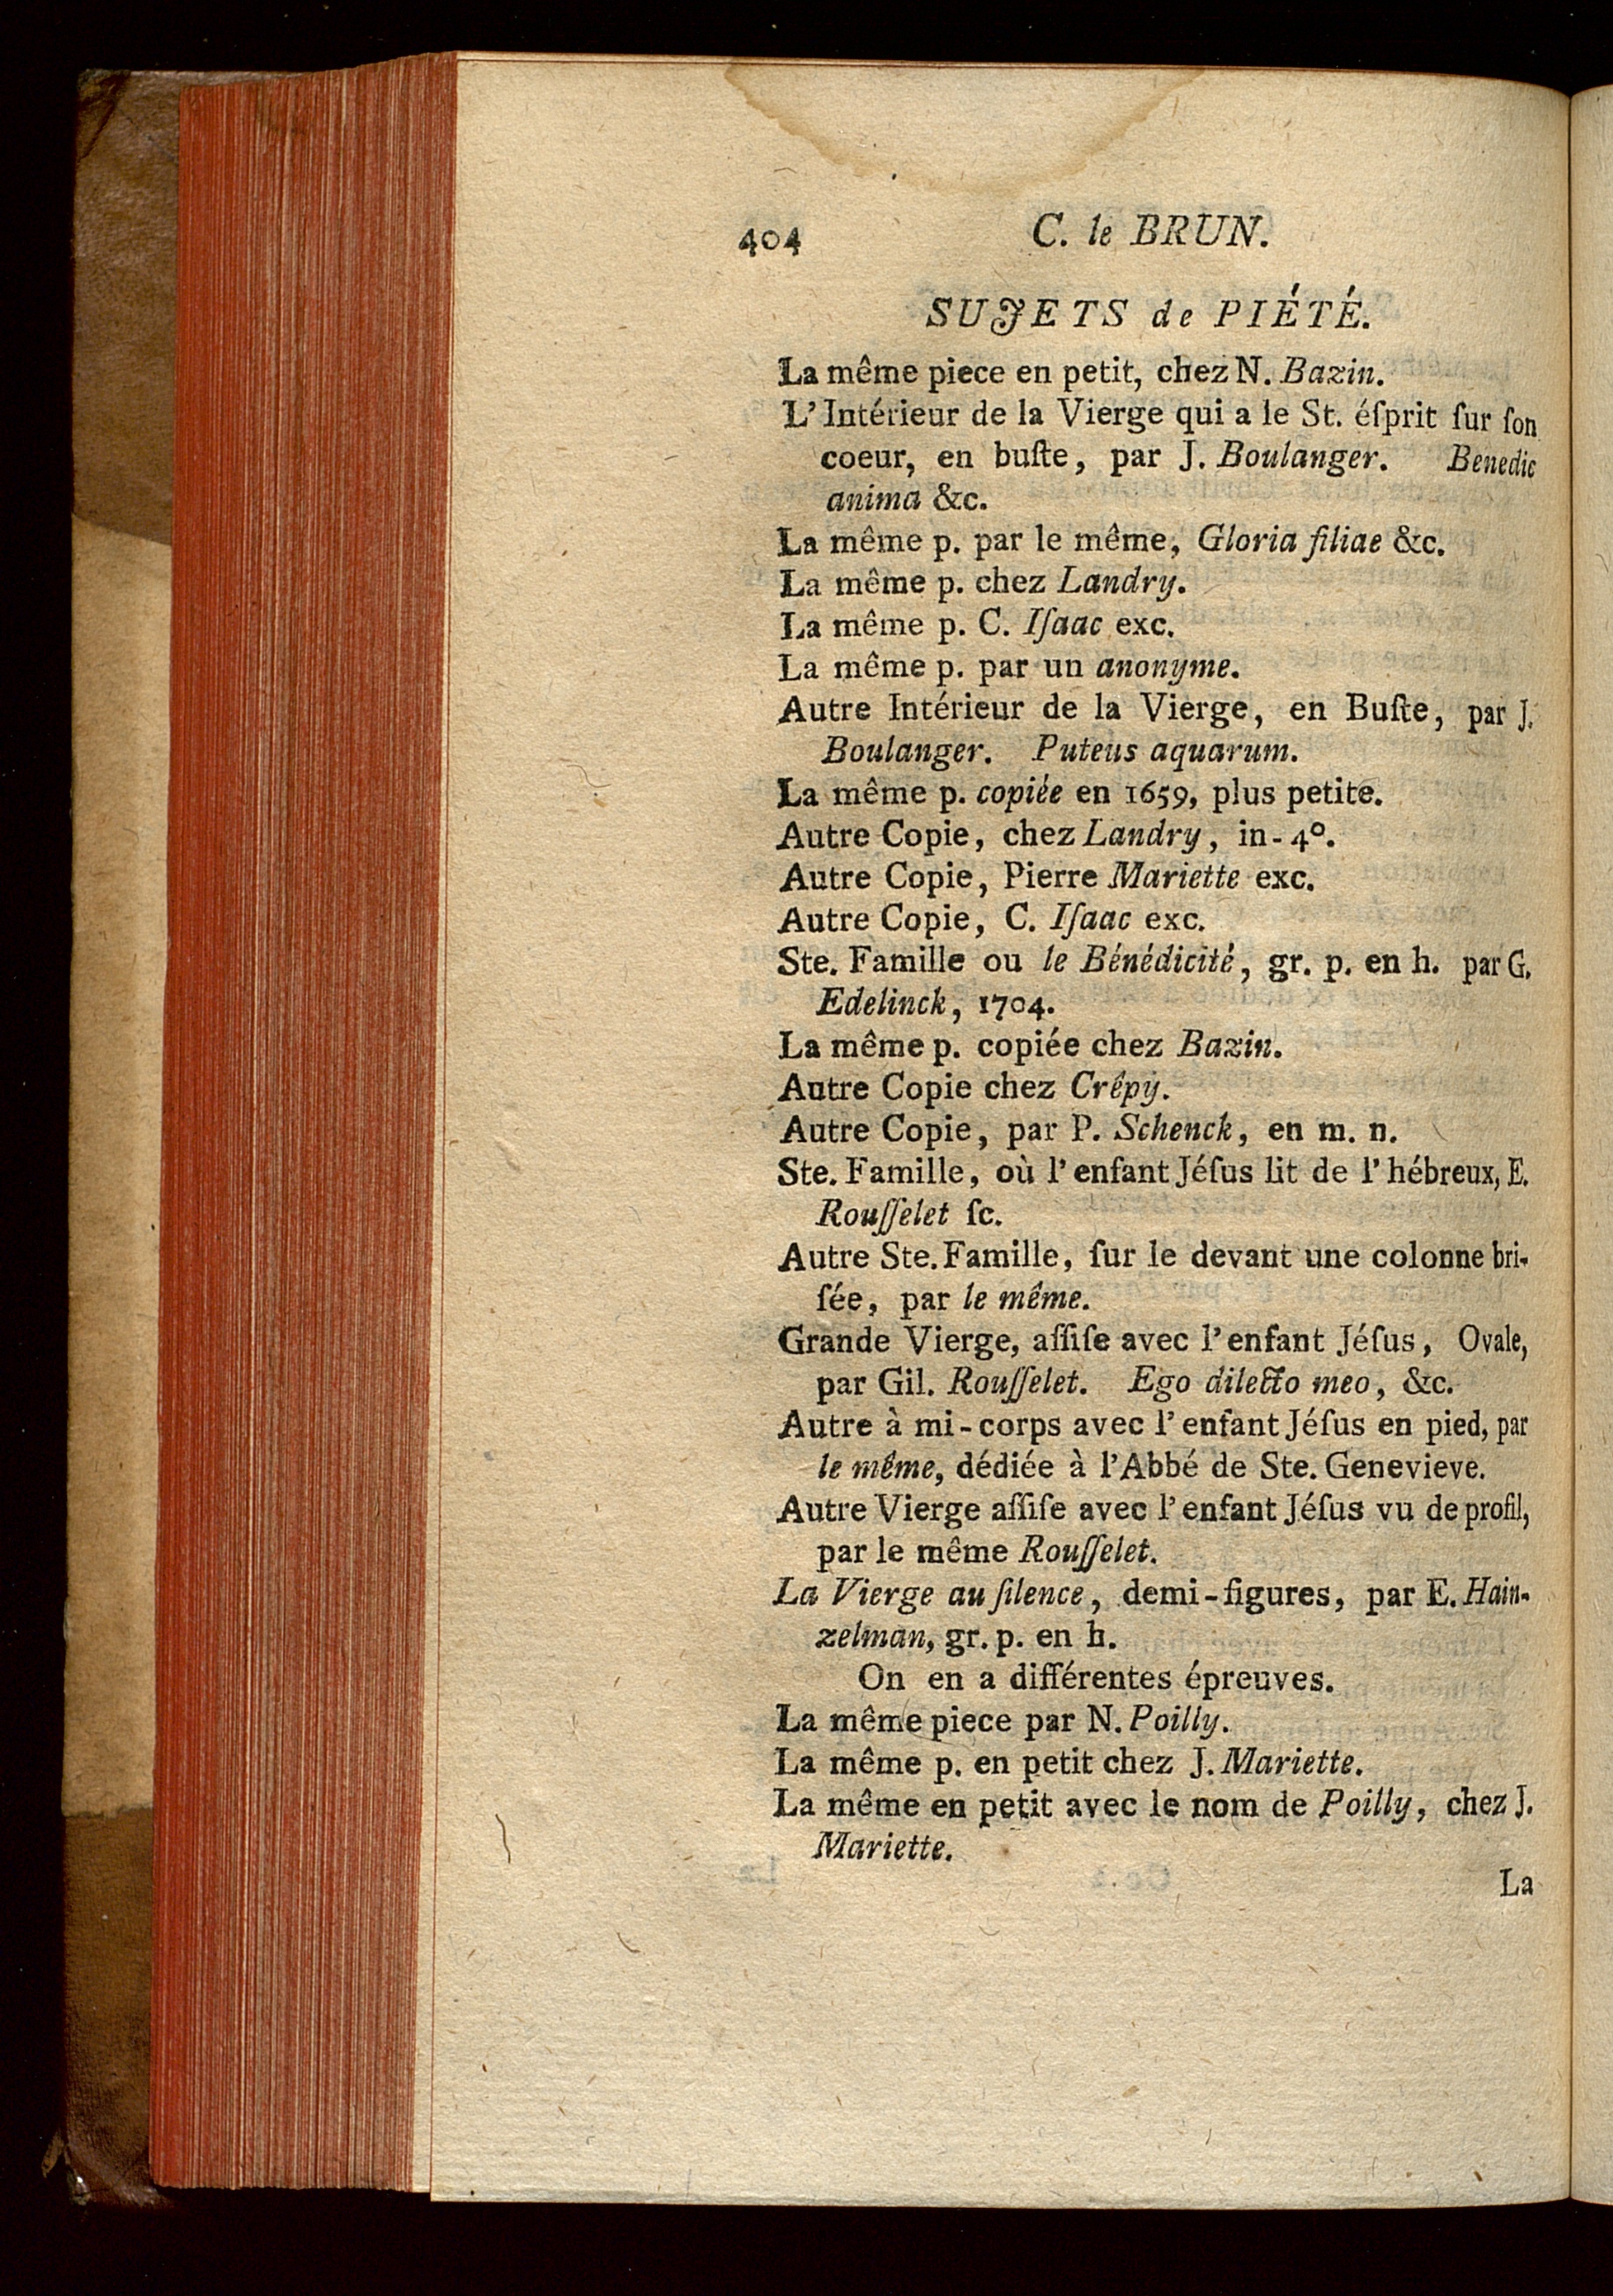 404 C. le BRUN.
SUJETS de PIÉTÉ.
La même piece en petit, chez N. Bazin.
L'Intérieur de la Vierge qui a le St. éſprit ſur ſon
coeur, en buſte, par J. Boulanger. Benedic
anima &c.
La même p. par le même, Gloria filiae &c.
La même p. chez Landry.
La même p. C. Iſaac exc.
La même p. par un anonyme.
Autre Intérieur de la Vierge, en Buſte, par J.
Boulanger. Puteus aquarum.
La même p. copiée en 1659, plus petite.
Autre Copie, chez Landry, in-4°.
Autre Copie, Pierre Mariette exc.
Autre Copie, C. Iſaac exc.
Ste. Famille ou le Bénédicité, gr. p. en h. par G.
Edelinck, 1704.
La même p. copiée chez Bazin.
Autre Copie chez Crêpy.
Autre Copie, par P. Schenck, en m. n.
Ste. Famille, où l'enfant Jéſus lit de l'hébreux, E.
Rouſſelet ſc.
Autre Ste. Famille, ſur le devant une colonne bri-
ſée, par le même.
Grande Vierge, aſſiſe avec l'enfant Jéſus, Ovale,
par Gil. Rouſſelet. Ego dilecto meo, &c.
Autre à mi-corps avec l'enfant Jéſus en pied, par
le même, dédiée à l'Abbé de Ste. Genevieve.
Autre Vierge aſſiſe avec l'enfant Jéſus vu de profil,
par le même Rouſſelet.
La Vierge au ſilence, demi-figures, par E. Hain-
zelman, gr. p. en h.
On en a différentes épreuves.
La même piece par N. Poilly.
La même p. en petit chez J. Mariette.
La même en petit avec le nom de Poilly, chez J.
Mariette.
La